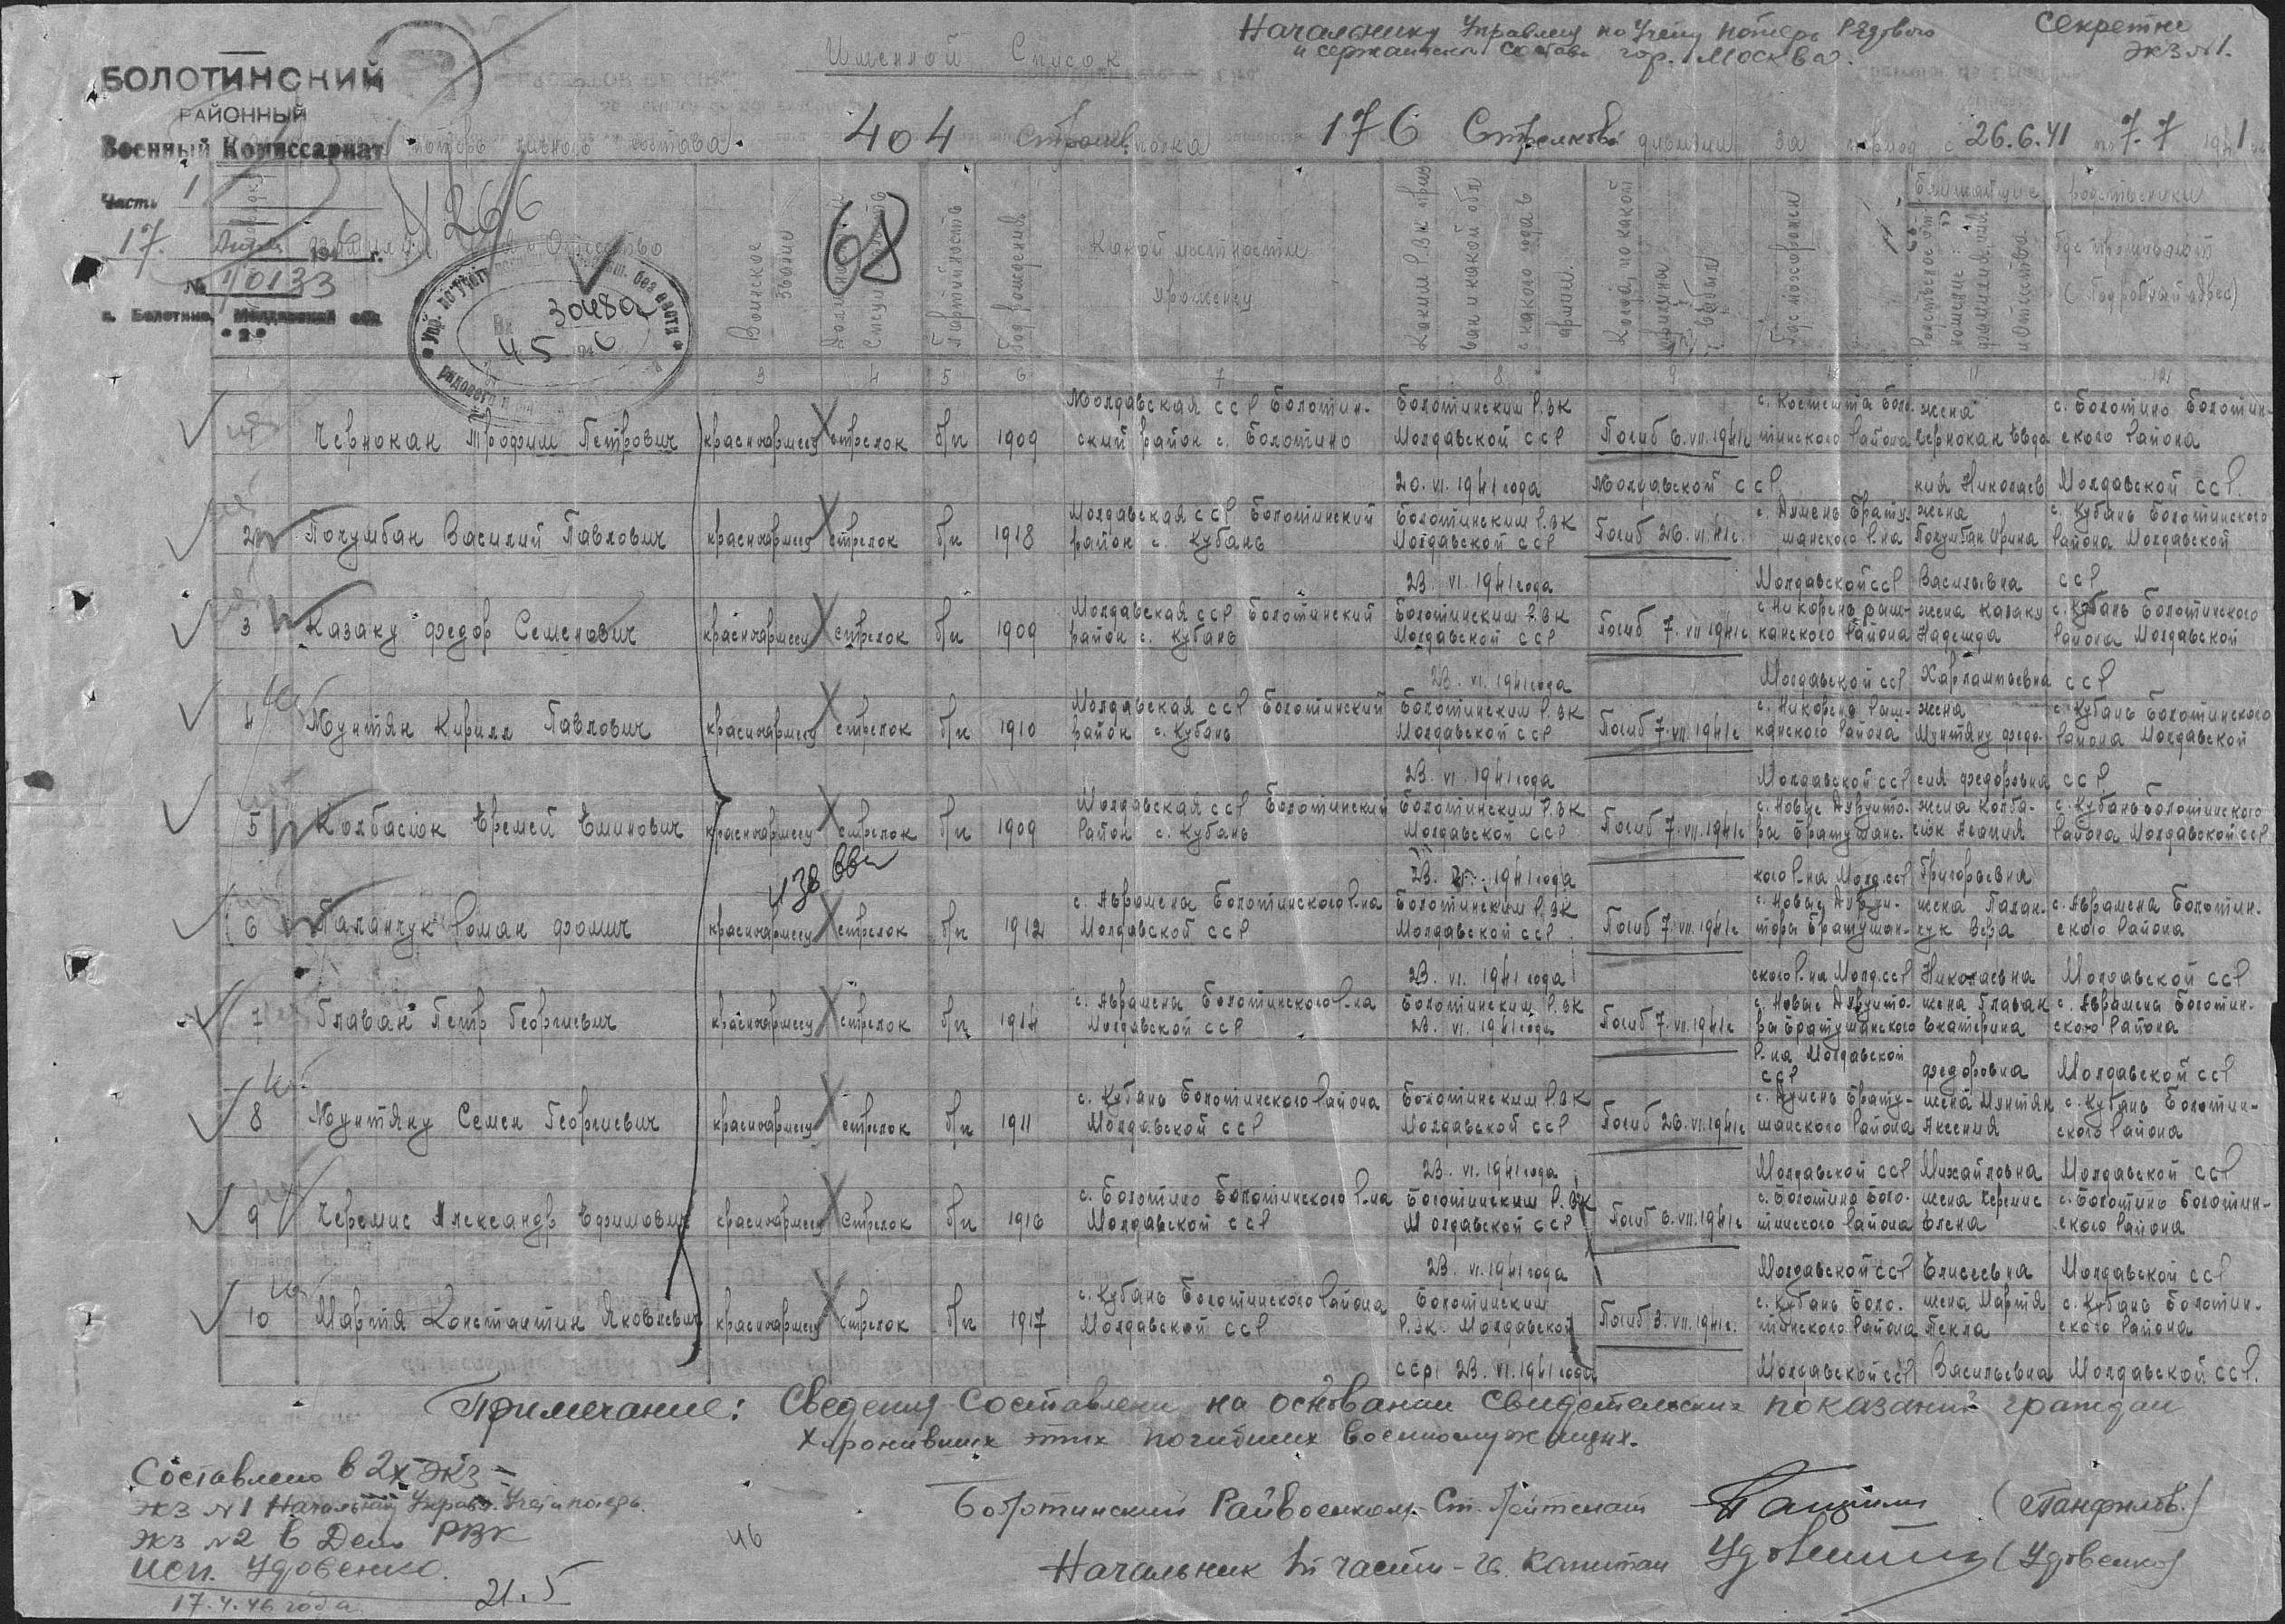 Начальнику Управлен по Учету потерь Рядового
и сержантского состава гор. Москва.
Секретно
экз №1.
Именной Список
БОЛОТИНСКИЙ
РАЙОННЫЙ
Военный Комиссариат
потерь личного состава. 404 Стрелков. полка 176 Стрелковой дивизии за период с 26.6.41 по 7.7 1941
Часть 1
17. 1946 г.
№ 10133
с. Болотино,
266
68
Фамилия, имя и Отчество
Воинское звание
Партийность
Год рождения
Какой местности уроженец
Каким РВК призван и какой обл с какого года в армии.
Когда, по какой причине выбыл
Где похоронен
Ближайшие родственники
Родственное отношение фамилия, имя и отчество
Где проживают (подробный адрес)
Вх 30480
45 1946
3 4 5 6 7 8 9 11
1 Чернокан Трофим Петрович красноармеец стрелок б/п 1909 Молдавская ССР Болотинский район с. Болотино Болотинским РВК Молдавской ССР 20.VI.1941 года Погиб 6.VII.1941г с. Костешта Болотинского района Молдавской ССР жена Чернокан Евдокия Николаев с. Болотино Болотинского района Молдавской ССР.
2 Почумбан Василий Павлович красноармеец стрелок б/п 1918 Молдавская ССР Болотинский район с. Кубань Болотинским РВК Молдавской ССР 23.VI.1941 года Погиб 26.VI.41г. Братушанского р-на Молдавской ССР жена Почумбан Ирина Васильевна с. Кубань Болотинского района Молдавской ССР
3 Казаку Федор Семенович красноармеец стрелок б/п 1909 Молдавская ССР Болотинский район с. Кубань Болотинским РВК Молдавской ССР 23.VI.1941 года Погиб 7.VII.1941г с. Никорены Рышканского района Молдавской ССР жена Казаку Надежда Харлампьевна с. Кубань Болотинского района Молдавской ССР
4 Мунтян Кирилл Павлович красноармеец стрелок б/п 1910 Молдавская ССР Болотинский район с. Кубань Болотинским РВК Молдавской ССР 23.VI.1941 года Погиб 7.VII.1941г с. Никорены Рышканского района Молдавской ССР жена Мунтяну Федосия Федоровна с. Кубань Болотинского района Молдавской ССР
5 Колбасюк Еремей Еминович красноармеец стрелок б/п 1909 Молдавская ССР Болотинский район с. Кубань Болотинским РВК Молдавской ССР 23. 1941 года Погиб 7.VII.1941г с. Новые Друиторы Братушанского р-на Молд.ССР жена Колбасюк Агапия Григорьевна с. Кубань Болотинского района Молдавской ССР
6 Паланчук Роман Фомич красноармеец стрелок б/п 1912 с. Аврамена Болотинского р-на Молдавской ССР Болотинским РВК Молдавской ССР 23.VI.1941 года Погиб 7.VII.1941г с. Новые Друиторы Братушанского р-на Молд.ССР жена Паланчук Вера Николаевна с. Аврамена Болотинского района Молдавской ССР
7 Главан Петр Георгиевич красноармеец стрелок б/п 1914 с. Аврамены Болотинского р-на Молдавской ССР Болотинским РВК 23.VI.1941 года Погиб 7.VII.1941г с. Новые Друиторы Братушанского р-на Молдавской ССР жена Главан Екатерина Федоровна с. Аврамены Болотинского района Молдавской ССР
8 Мунтяну Семен Георгиевич красноармеец стрелок б/п 1911 с. Кубань Болотинского района Молдавской ССР Болотинским РВК Молдавской ССР 23.VI.1941 года Погиб 26.VI.1941г Братушанского района Молдавской ССР жена Мунтян Аксения Михайловна с. Кубань Болотинского района Молдавской ССР
9 Черемис Александр Ефимович красноармеец стрелок б/п 1916 с. Болотино Болотинского р-на Молдавской ССР Болотинским РВК Молдавской ССР 23.VI.1941 года Погиб 6.VII.1941г с. Болотино Болотинского района Молдавской ССР жена Черемис Елена Елисеевна с. Болотино Болотинского района Молдавской ССР
10 Мартя Константин Яковлевич красноармеец стрелок б/п 1917 с. Кубань Болотинского района Молдавской ССР Болотинским РВК Молдавской ССР 23.VI.1941 года Погиб 3.VII.1941г. с. Кубань Болотинского района Молдавской ССР жена Мартя Текла Васильевна с. Кубань Болотинского района Молдавской ССР.
Примечание: Сведения составлены на основании свидетельских показаний граждан
хоронивших этих погибших военнослужащих.
Составлено в 2х экз -
экз №1 Начальнику Управл. Учета потерь.
экз №2 в Дело РВК
исп. Удовенко.
17.4.46 года
21.5
46
Болотинский Райвоенком Ст. Лейтенант (Панфилов.)
Начальник 1й части - гв. Капитан (Удовенко)